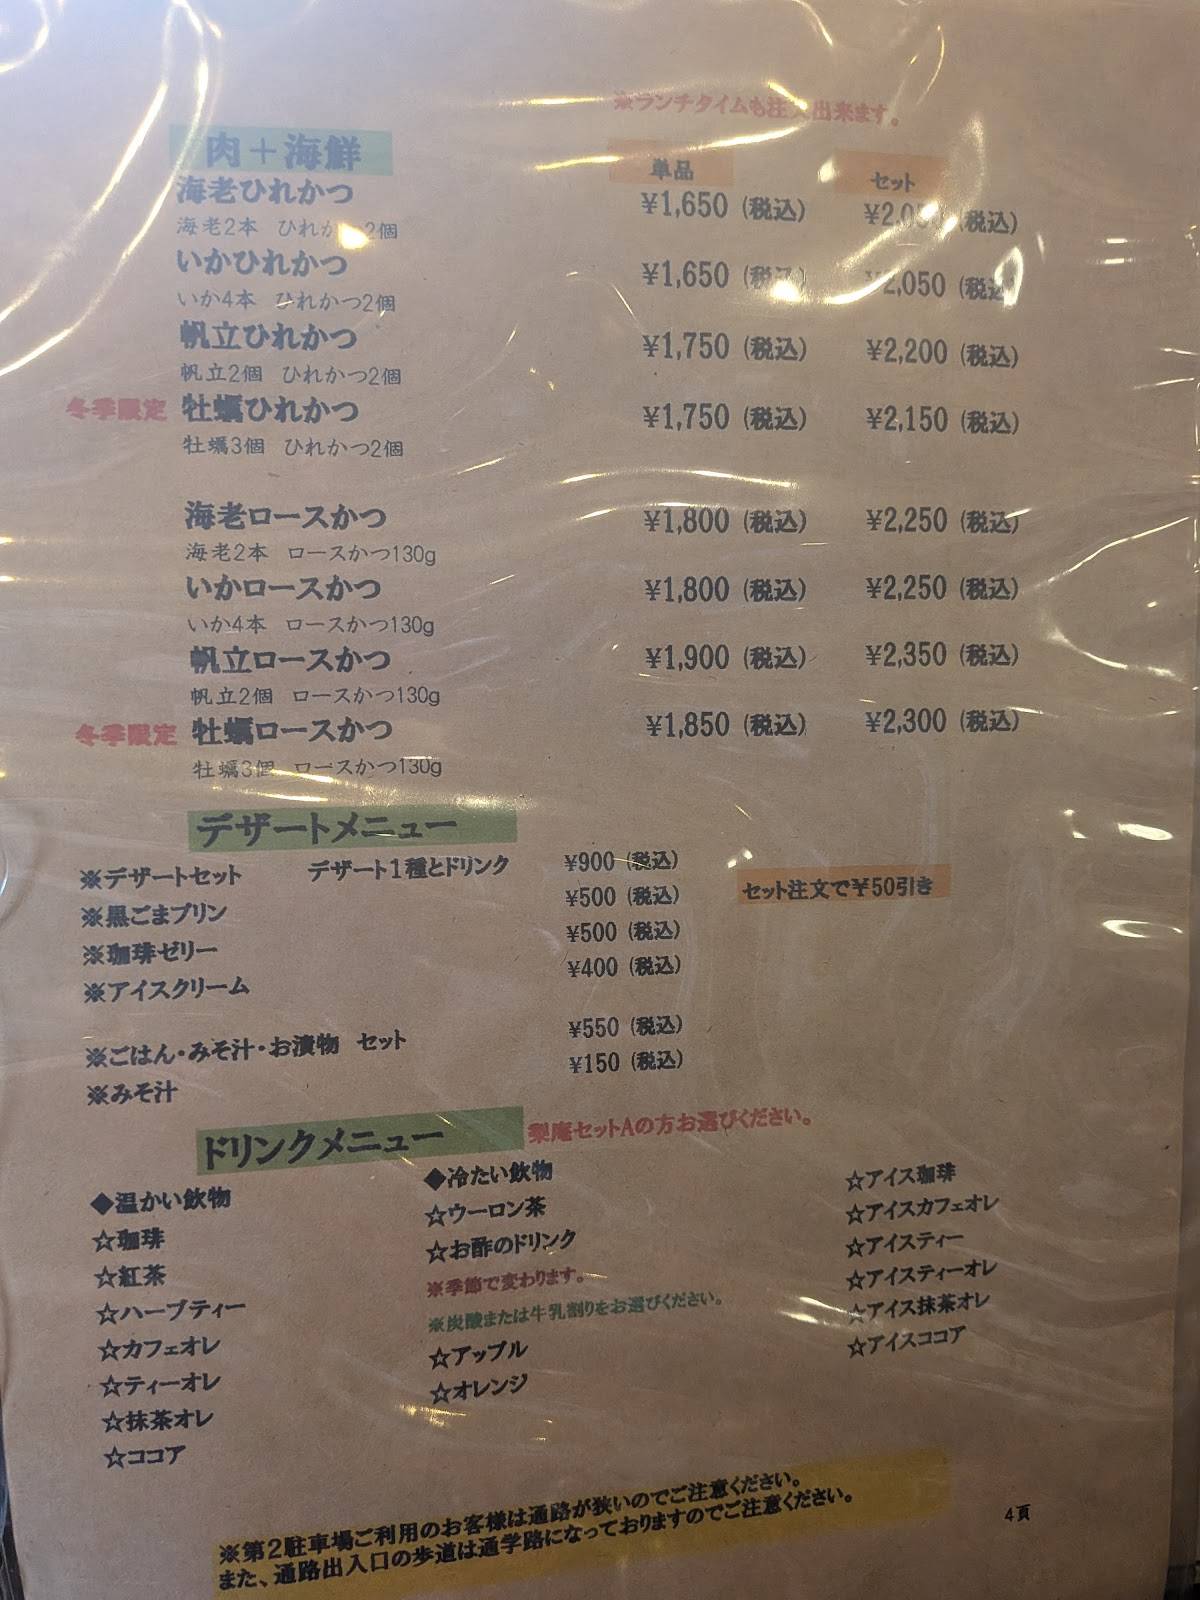 ※ランチタイムも注文出来ます。
肉＋海鮮 単品 セット
海老ひれかつ ¥1,650 (税込) ¥2,050 (税込)
海老2本 ひれかつ2個
いかひれかつ ¥1,650 (税込) ¥2,050 (税込)
いか4本 ひれかつ2個
帆立ひれかつ ¥1,750 (税込) ¥2,200 (税込)
帆立2個 ひれかつ2個
冬季限定 牡蠣ひれかつ ¥1,750 (税込) ¥2,150 (税込)
牡蠣3個 ひれかつ2個
海老ロースかつ ¥1,800 (税込) ¥2,250 (税込)
海老2本 ロースかつ130g
いかロースかつ ¥1,800 (税込) ¥2,250 (税込)
いか4本 ロースかつ130g
帆立ロースかつ ¥1,900 (税込) ¥2,350 (税込)
帆立2個 ロースかつ130g
冬季限定 牡蠣ロースかつ ¥1,850 (税込) ¥2,300 (税込)
牡蠣3個 ロースかつ130g
デザートメニュー
※デザートセット デザート1種とドリンク ¥900 (税込)
※黒ごまプリン ¥500 (税込) セット注文で¥50引き
※珈琲ゼリー ¥500 (税込)
※アイスクリーム ¥400 (税込)
※ごはん・みそ汁・お漬物 セット ¥550 (税込)
※みそ汁 ¥150 (税込)
ドリンクメニュー 梨庵セットAの方お選びください。
◆温かい飲物
☆珈琲
☆紅茶
☆ハーブティー
☆カフェオレ
☆ティーオレ
☆抹茶オレ
☆ココア
◆冷たい飲物
☆ウーロン茶
☆お酢のドリンク
※季節で変わります。
※炭酸または牛乳割りをお選びください。
☆アップル
☆オレンジ
☆アイス珈琲
☆アイスカフェオレ
☆アイスティー
☆アイスティーオレ
☆アイス抹茶オレ
☆アイスココア
※第2駐車場ご利用のお客様は通路が狭いのでご注意ください。
また、通路出入口の歩道は通学路になっておりますのでご注意ください。
4頁